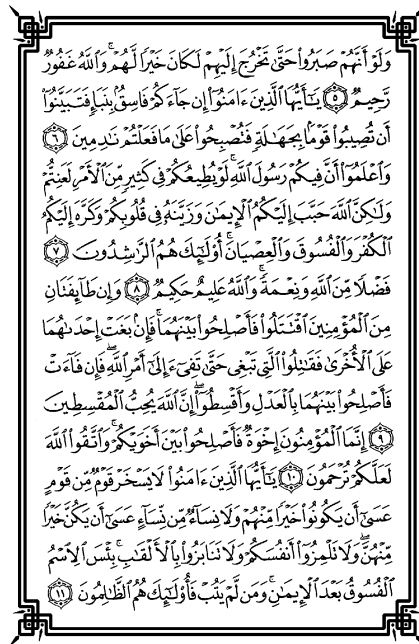 وَلَوْ أَنَّهُمْ صَبَرُوا۟ حَتَّىٰ تَخْرُجَ إِلَيْهِمْ لَكَانَ خَيْرًا لَّهُمْ ۚ وَٱللَّهُ غَفُورٌ
رَّحِيمٌ ٥ يَٰٓأَيُّهَا ٱلَّذِينَ ءَامَنُوٓا۟ إِن جَآءَكُمْ فَاسِقٌۢ بِنَبَإٍ فَتَبَيَّنُوٓا۟
أَن تُصِيبُوا۟ قَوْمًۢا بِجَهَٰلَةٍ فَتُصْبِحُوا۟ عَلَىٰ مَا فَعَلْتُمْ نَٰدِمِينَ ٦
وَٱعْلَمُوٓا۟ أَنَّ فِيكُمْ رَسُولَ ٱللَّهِ ۚ لَوْ يُطِيعُكُمْ فِى كَثِيرٍ مِّنَ ٱلْأَمْرِ لَعَنِتُّمْ
وَلَٰكِنَّ ٱللَّهَ حَبَّبَ إِلَيْكُمُ ٱلْإِيمَٰنَ وَزَيَّنَهُۥ فِى قُلُوبِكُمْ وَكَرَّهَ إِلَيْكُمُ
ٱلْكُفْرَ وَٱلْفُسُوقَ وَٱلْعِصْيَانَ ۚ أُو۟لَٰٓئِكَ هُمُ ٱلرَّٰشِدُونَ ٧
فَضْلًا مِّنَ ٱللَّهِ وَنِعْمَةً ۚ وَٱللَّهُ عَلِيمٌ حَكِيمٌ ٨ وَإِن طَآئِفَتَانِ
مِنَ ٱلْمُؤْمِنِينَ ٱقْتَتَلُوا۟ فَأَصْلِحُوا۟ بَيْنَهُمَا ۖ فَإِنۢ بَغَتْ إِحْدَىٰهُمَا
عَلَى ٱلْأُخْرَىٰ فَقَٰتِلُوا۟ ٱلَّتِى تَبْغِى حَتَّىٰ تَفِىٓءَ إِلَىٰٓ أَمْرِ ٱللَّهِ ۚ فَإِن فَآءَتْ
فَأَصْلِحُوا۟ بَيْنَهُمَا بِٱلْعَدْلِ وَأَقْسِطُوٓا۟ ۖ إِنَّ ٱللَّهَ يُحِبُّ ٱلْمُقْسِطِينَ
٩ إِنَّمَا ٱلْمُؤْمِنُونَ إِخْوَةٌ فَأَصْلِحُوا۟ بَيْنَ أَخَوَيْكُمْ ۚ وَٱتَّقُوا۟ ٱللَّهَ
لَعَلَّكُمْ تُرْحَمُونَ ١٠ يَٰٓأَيُّهَا ٱلَّذِينَ ءَامَنُوا۟ لَا يَسْخَرْ قَوْمٌ مِّن قَوْمٍ
عَسَىٰٓ أَن يَكُونُوا۟ خَيْرًا مِّنْهُمْ وَلَا نِسَآءٌ مِّن نِّسَآءٍ عَسَىٰٓ أَن يَكُنَّ خَيْرًا
مِّنْهُنَّ ۖ وَلَا تَلْمِزُوٓا۟ أَنفُسَكُمْ وَلَا تَنَابَزُوا۟ بِٱلْأَلْقَٰبِ ۖ بِئْسَ ٱلِٱسْمُ
ٱلْفُسُوقُ بَعْدَ ٱلْإِيمَٰنِ ۚ وَمَن لَّمْ يَتُبْ فَأُو۟لَٰٓئِكَ هُمُ ٱلظَّٰلِمُونَ ١١